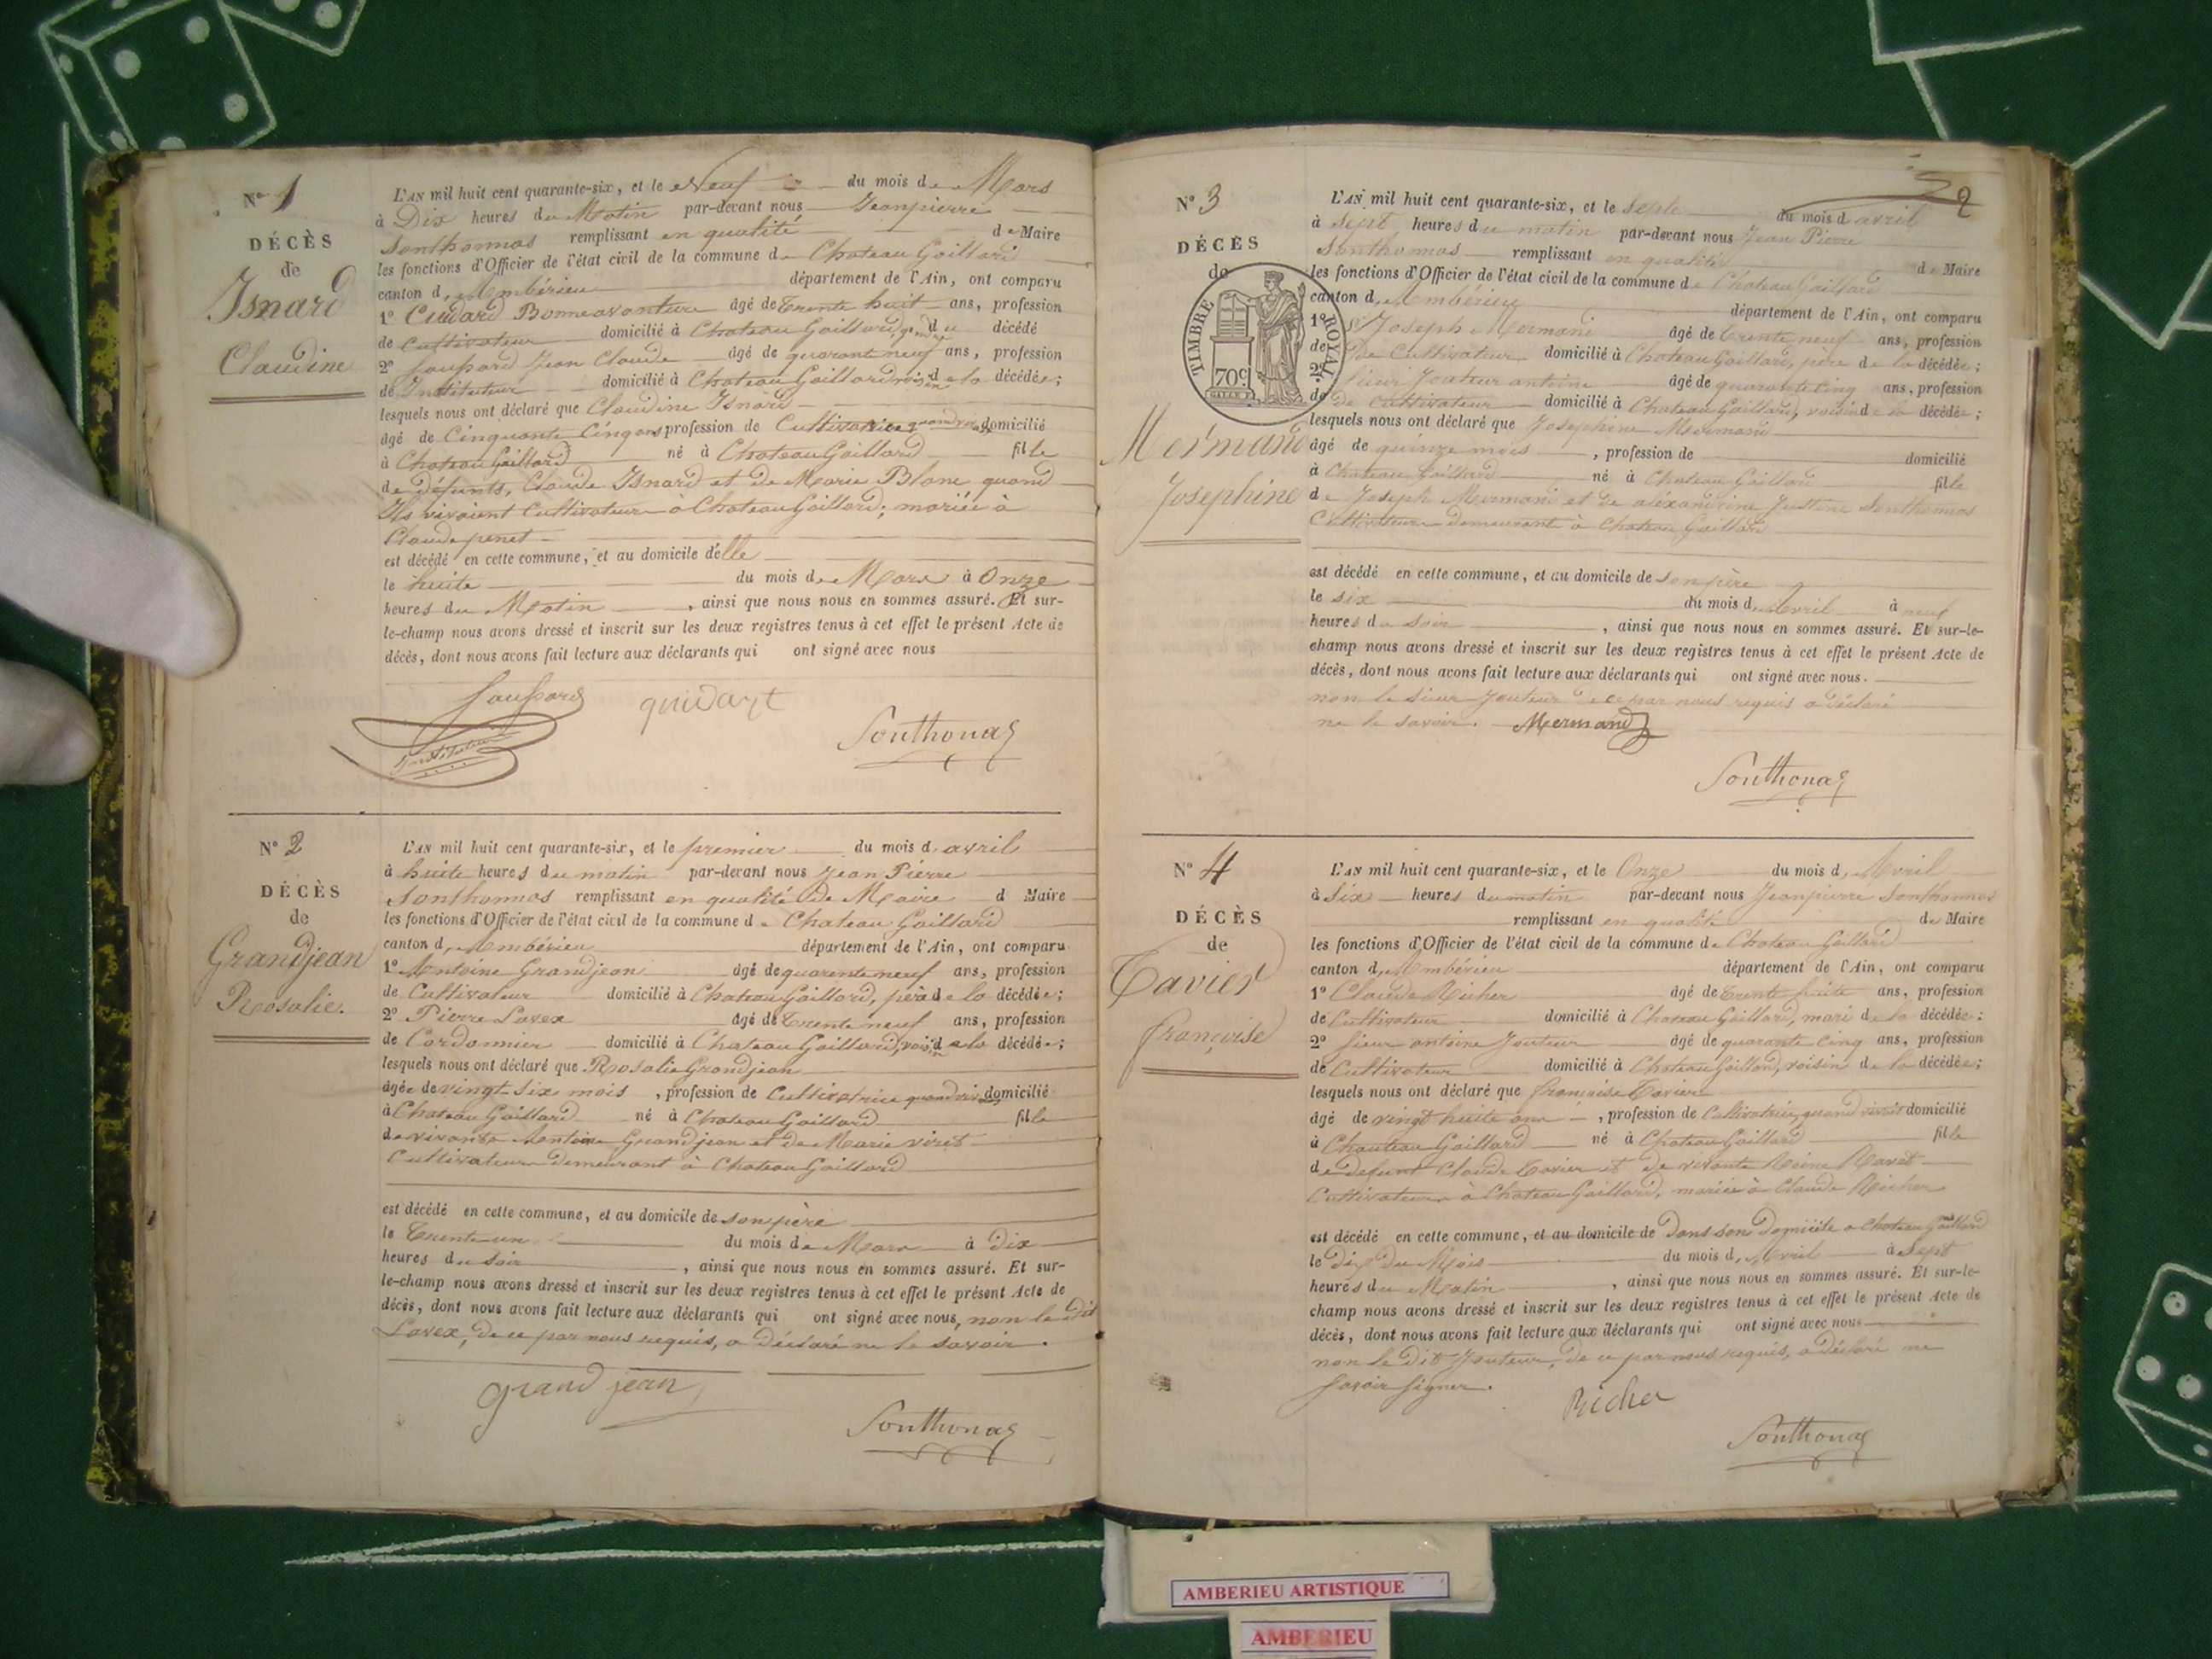 N° 1
DÉCÈS
de
Isnard
Claudine
L'AN mil huit cent quarante-six, et le Neuf du mois de Mars
à Dix heures du Matin par-devant nous Jeanpierre
Sonthonnas remplissant en qualité de Maire
les fonctions d'Officier de l'état civil de la commune de Chateau Gaillard
canton d'Ambérieu département de l'Ain, ont comparu
1° Bonneavanture âgé de Trente huit ans, profession
de Cultivateur domicilié à Chateau Gaillard, décédé
2° Jean Claude âgé de quarant neuf ans, profession
de Instituteur domicilié à Chateau Gaillard voisin de la décédée;
lesquels nous ont déclaré que Claudine Isnard
âgé de Cinquante Cinq ans profession de Cultivatrice domicilié
à Chateau Gaillard né à Chateau Gaillard fille
de défunts, Claude Isnard et de Marie Blanc quand
Ils vivaient Cultivateur à Chateau Gaillard; mariée à
Claude penet
est décédé en cette commune, et au domicile d'elle
le huite du mois de Mars à Onze
heures du Matin, ainsi que nous nous en sommes assuré. Et sur-
le-champ nous avons dressé et inscrit sur les deux registres tenus à cet effet le présent Acte de
décès, dont nous avons fait lecture aux déclarants qui ont signé avec nous
Sonthonas
Instituteur
N° 2
DÉCÈS
de
Grandjean
Rosalie.
L'AN mil huit cent quarante-six, et le premier du mois d avril
à huite heures du matin par-devant nous Jean Pierre
Sonthonnas remplissant en qualité de Maire d Maire
les fonctions d'Officier de l'état civil de la commune de Chateau Gaillard
canton d'Ambérieu département de l'Ain, ont comparu
1° Antoine Grandjean âgé de quarente neuf ans, profession
de Cultivateur domicilié à Chateau Gaillard, père de la décédée;
2° Pierre Savex âgé de Trente neuf ans, profession
de Cordonnier domicilié à Chateau Gaillard, voisin de la décédée;
lesquels nous ont déclaré que Rosalie Grandjean
âgée de vingt-six mois, profession de Cultivatrice domicilié
à Chateau Gaillard né à Chateau Gaillard fille
de vivants Antoine Grandjean et de Marie viret
Cultivateur demeurant à Chateau Gaillard
est décédé en cette commune, et au domicile de son père
le Trente un du mois de Mars à dix
heures du soir, ainsi que nous nous en sommes assuré. Et sur-
le-champ nous avons dressé et inscrit sur les deux registres tenus à cet effet le présent Acte de
décès, dont nous avons fait lecture aux déclarants qui ont signé avec nous, non le dit
Savex, de ce par nous requis, a déclaré ne le savoir.
grand jean
Sonthonas
2
N° 3
DÉCÈS
de
TIMBRE ROYAL
70c
Mermand
Josephine
L'AN mil huit cent quarante-six, et le septe du mois d avril
à sept heures du matin par-devant nous Jean Pierre
Sonthonnas remplissant en qualité de Maire
les fonctions d'Officier de l'état civil de la commune de Chateau Gaillard
canton d'Ambérieu département de l'Ain, ont comparu
1° Joseph Mermand âgé de Trente neuf ans, profession
de Cultivateur domicilié à Chateau Gaillard, père de la décédée;
2° Sieur Jouteur antoine âgé de quarante cinq ans, profession
de cultivateur domicilié à Chateau Gaillard, voisin de la décédée;
lesquels nous ont déclaré que Josephine Mermand
âgé de quinze mois, profession de domicilié
à Chateau Gaillard né à Chateau Gaillard fille
de Joseph Mermand et de aléxandrine Justine Sonthonnas
Cultivateur demeurant à Chateau Gaillard
est décédé en cette commune, et au domicile de son père
le six du mois d'Avril à neuf
heures du soir, ainsi que nous nous en sommes assuré. Et sur-le-
champ nous avons dressé et inscrit sur les deux registres tenus à cet effet le présent Acte de
décès, dont nous avons fait lecture aux déclarants qui ont signé avec nous.
non le sieur Jouteur de ce par nous requis a déclaré
ne le savoir. Mermand
Sonthonas
N° 4
DÉCÈS
de
Tavier
françoise
L'AN mil huit cent quarante-six, et le Onze du mois d'Avril
à Six heures du matin par-devant nous Jeanpierre Sonthonnas
remplissant en qualité de Maire
les fonctions d'Officier de l'état civil de la commune de Chateau Gaillard
canton d'Ambérieu département de l'Ain, ont comparu
1° Claude Richer âgé de Trente huite ans, profession
de Cultivateur domicilié à Chateau Gaillard, mari de la décédée;
2° Sieur antoine Jouteur âgé de quarante cinq ans, profession
de Cultivateur domicilié à Chateau Gaillard, voisin de la décédée;
lesquels nous ont déclaré que françoise Tavier
âgé de vingt huite ans, profession de Cultivatrice, quand vivait domicilié
à Chauteau Gaillard né à Chateau Gaillard fille
de defunt Claude Tavier et de vivante Ravet
Cultivateur à Chateau Gaillard, mariée à Claude Richer
est décédé en cette commune, et au domicile de Dans son domicile a Chateau Gaillard
le dix du Mois du mois d'Avril à Sept
heures du Matin, ainsi que nous nous en sommes assuré. Et sur-le-
champ nous avons dressé et inscrit sur les deux registres tenus à cet effet le présent Acte de
décès, dont nous avons fait lecture aux déclarants qui ont signé avec nous
non le dit Jouteur, de ce par nous requis, a déclaré ne
savoir signer.
Richer
Sonthonas
AMBERIEU ARTISTIQUE
AMBERIEU